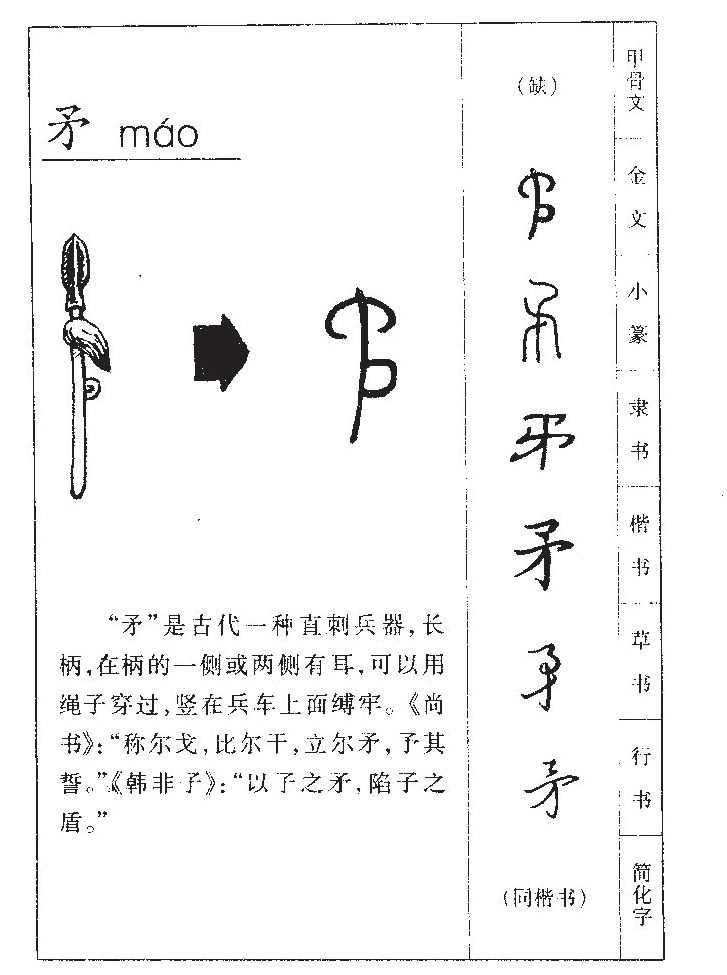 矛 máo
“矛”是古代一种直刺兵器,长
柄,在柄的一侧或两侧有耳,可以用
绳子穿过,竖在兵车上面缚牢。《尚
书》:“称尔戈,比尔干,立尔矛,予其
誓。”《韩非子》:“以子之矛,陷子之
盾。”
(缺) 甲骨文
矛 金文
矛 小篆
矛 隶书
矛 楷书
矛 草书
矛 行书
(同楷书) 简化字